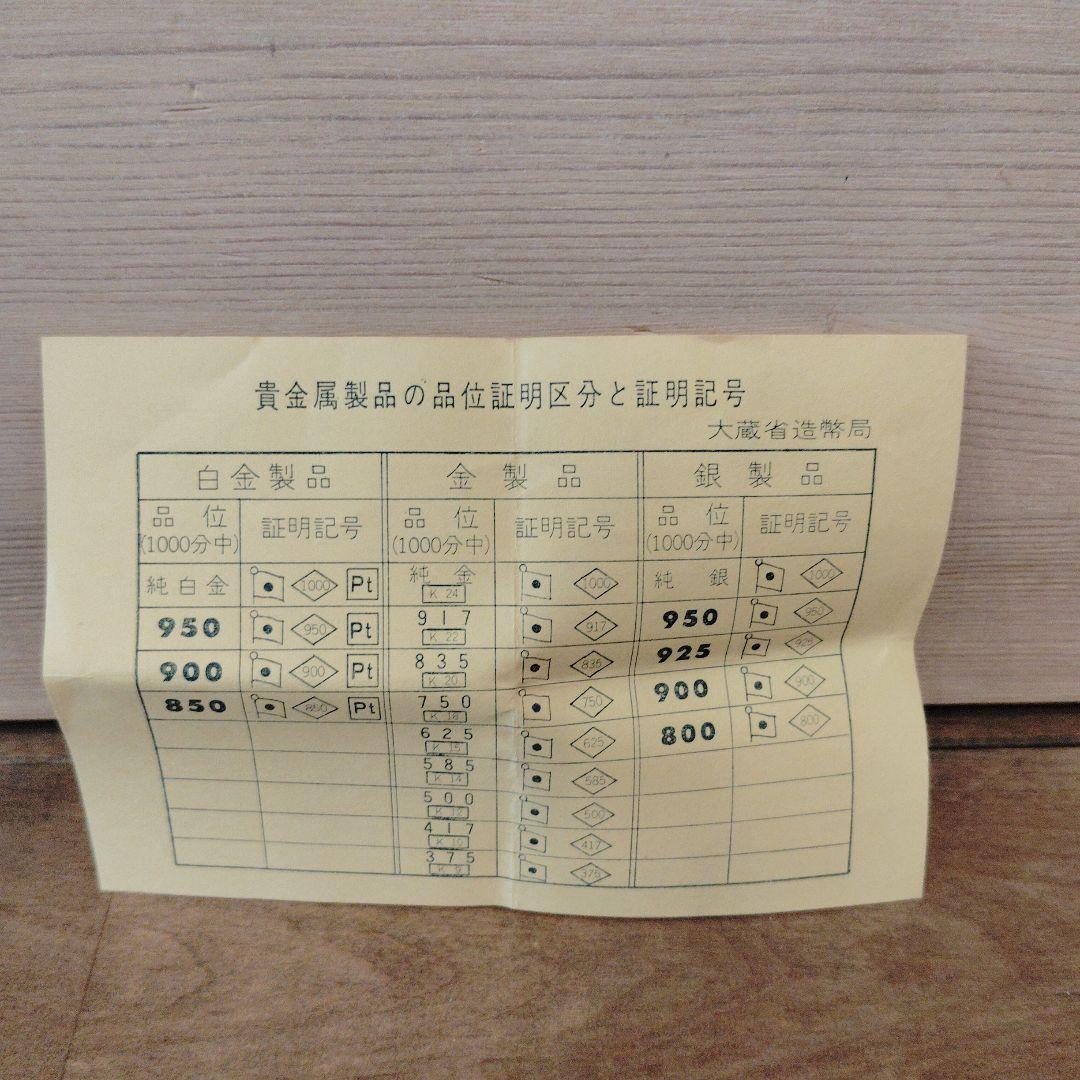 貴金属製品の品位証明区分と証明記号
大蔵省造幣局
白金製品 金製品 銀製品
品位 証明記号 品位 証明記号 品位 証明記号
(1000分中) (1000分中) (1000分中)
純白金 1000 Pt 純金 K 24 1000 純銀 1000
950 950 Pt 917 K 22 917 950 950
900 900 Pt 835 K 20 835 925 925
850 850 Pt 750 K 18 750 900 900
625 K 15 625 800 800
585 K 14 585
500 K 12 500
417 K 10 417
375 K 9 375